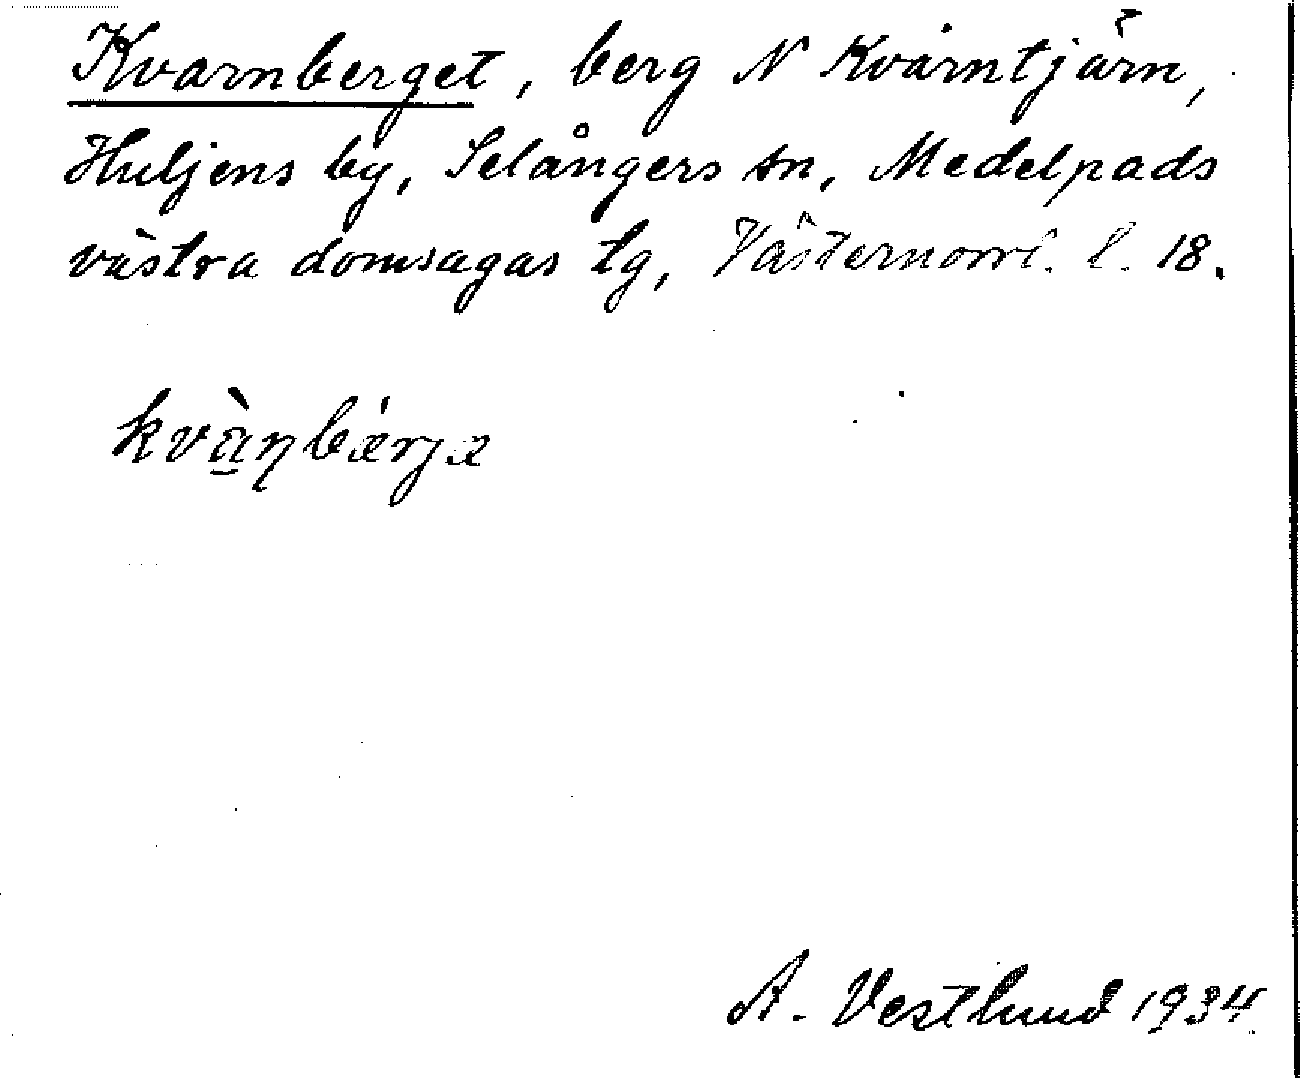 Kvarnberget, berg N Kvarntjärn,
Huljens by, Selångers sn, Medelpads
västra domsagas tg, Västernorrl. l. 18.
kvàṉbærjæ
A. Vestlund 1934